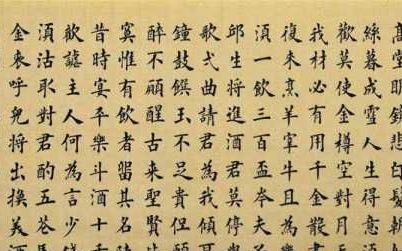 高堂明鏡悲白髮
絲暮成雪人生得意
歡莫使金樽空對月
我材必有用千金散
復来烹羊宰牛且為
湏一飲三百盃岑夫
邱生將進酒君莫停
歌弌曲請君為我傾
鐘鼓饌玉不足貴但
醉不願醒古来聖賢
寞惟有飲者留其名
昔時宴平樂斗酒十
歡謔主人何為言少
湏沽取對君酌五花
金裘呼兒將出換美